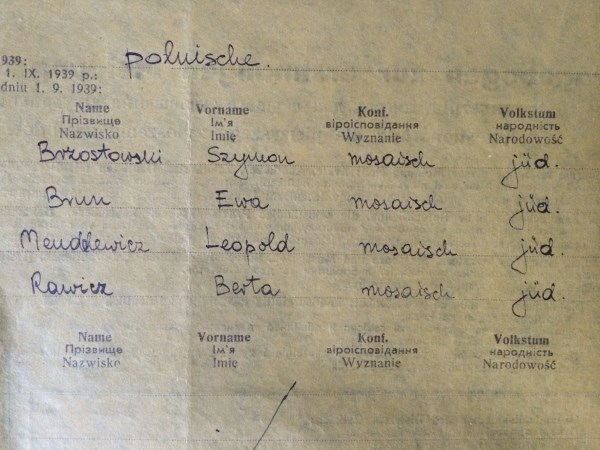 939:
1. IX. 1939 р.:
dniu 1. 9. 1939:
polnische.
Name Vorname Konf. Volkstum
Прізвище Ім'я віроісповідання народність
Nazwisko Imię Wyznanie Narodowość
Brzostowski Szymon mosaisch jüd.
Brun Ewa mosaisch jüd.
Mendlewicz Leopold mosaisch jüd.
Rawicz Berta mosaisch jüd.
Name Vorname Konf. Volkstum
Прізвище Ім'я віроісповідання народність
Nazwisko Imię Wyznanie Narodowość